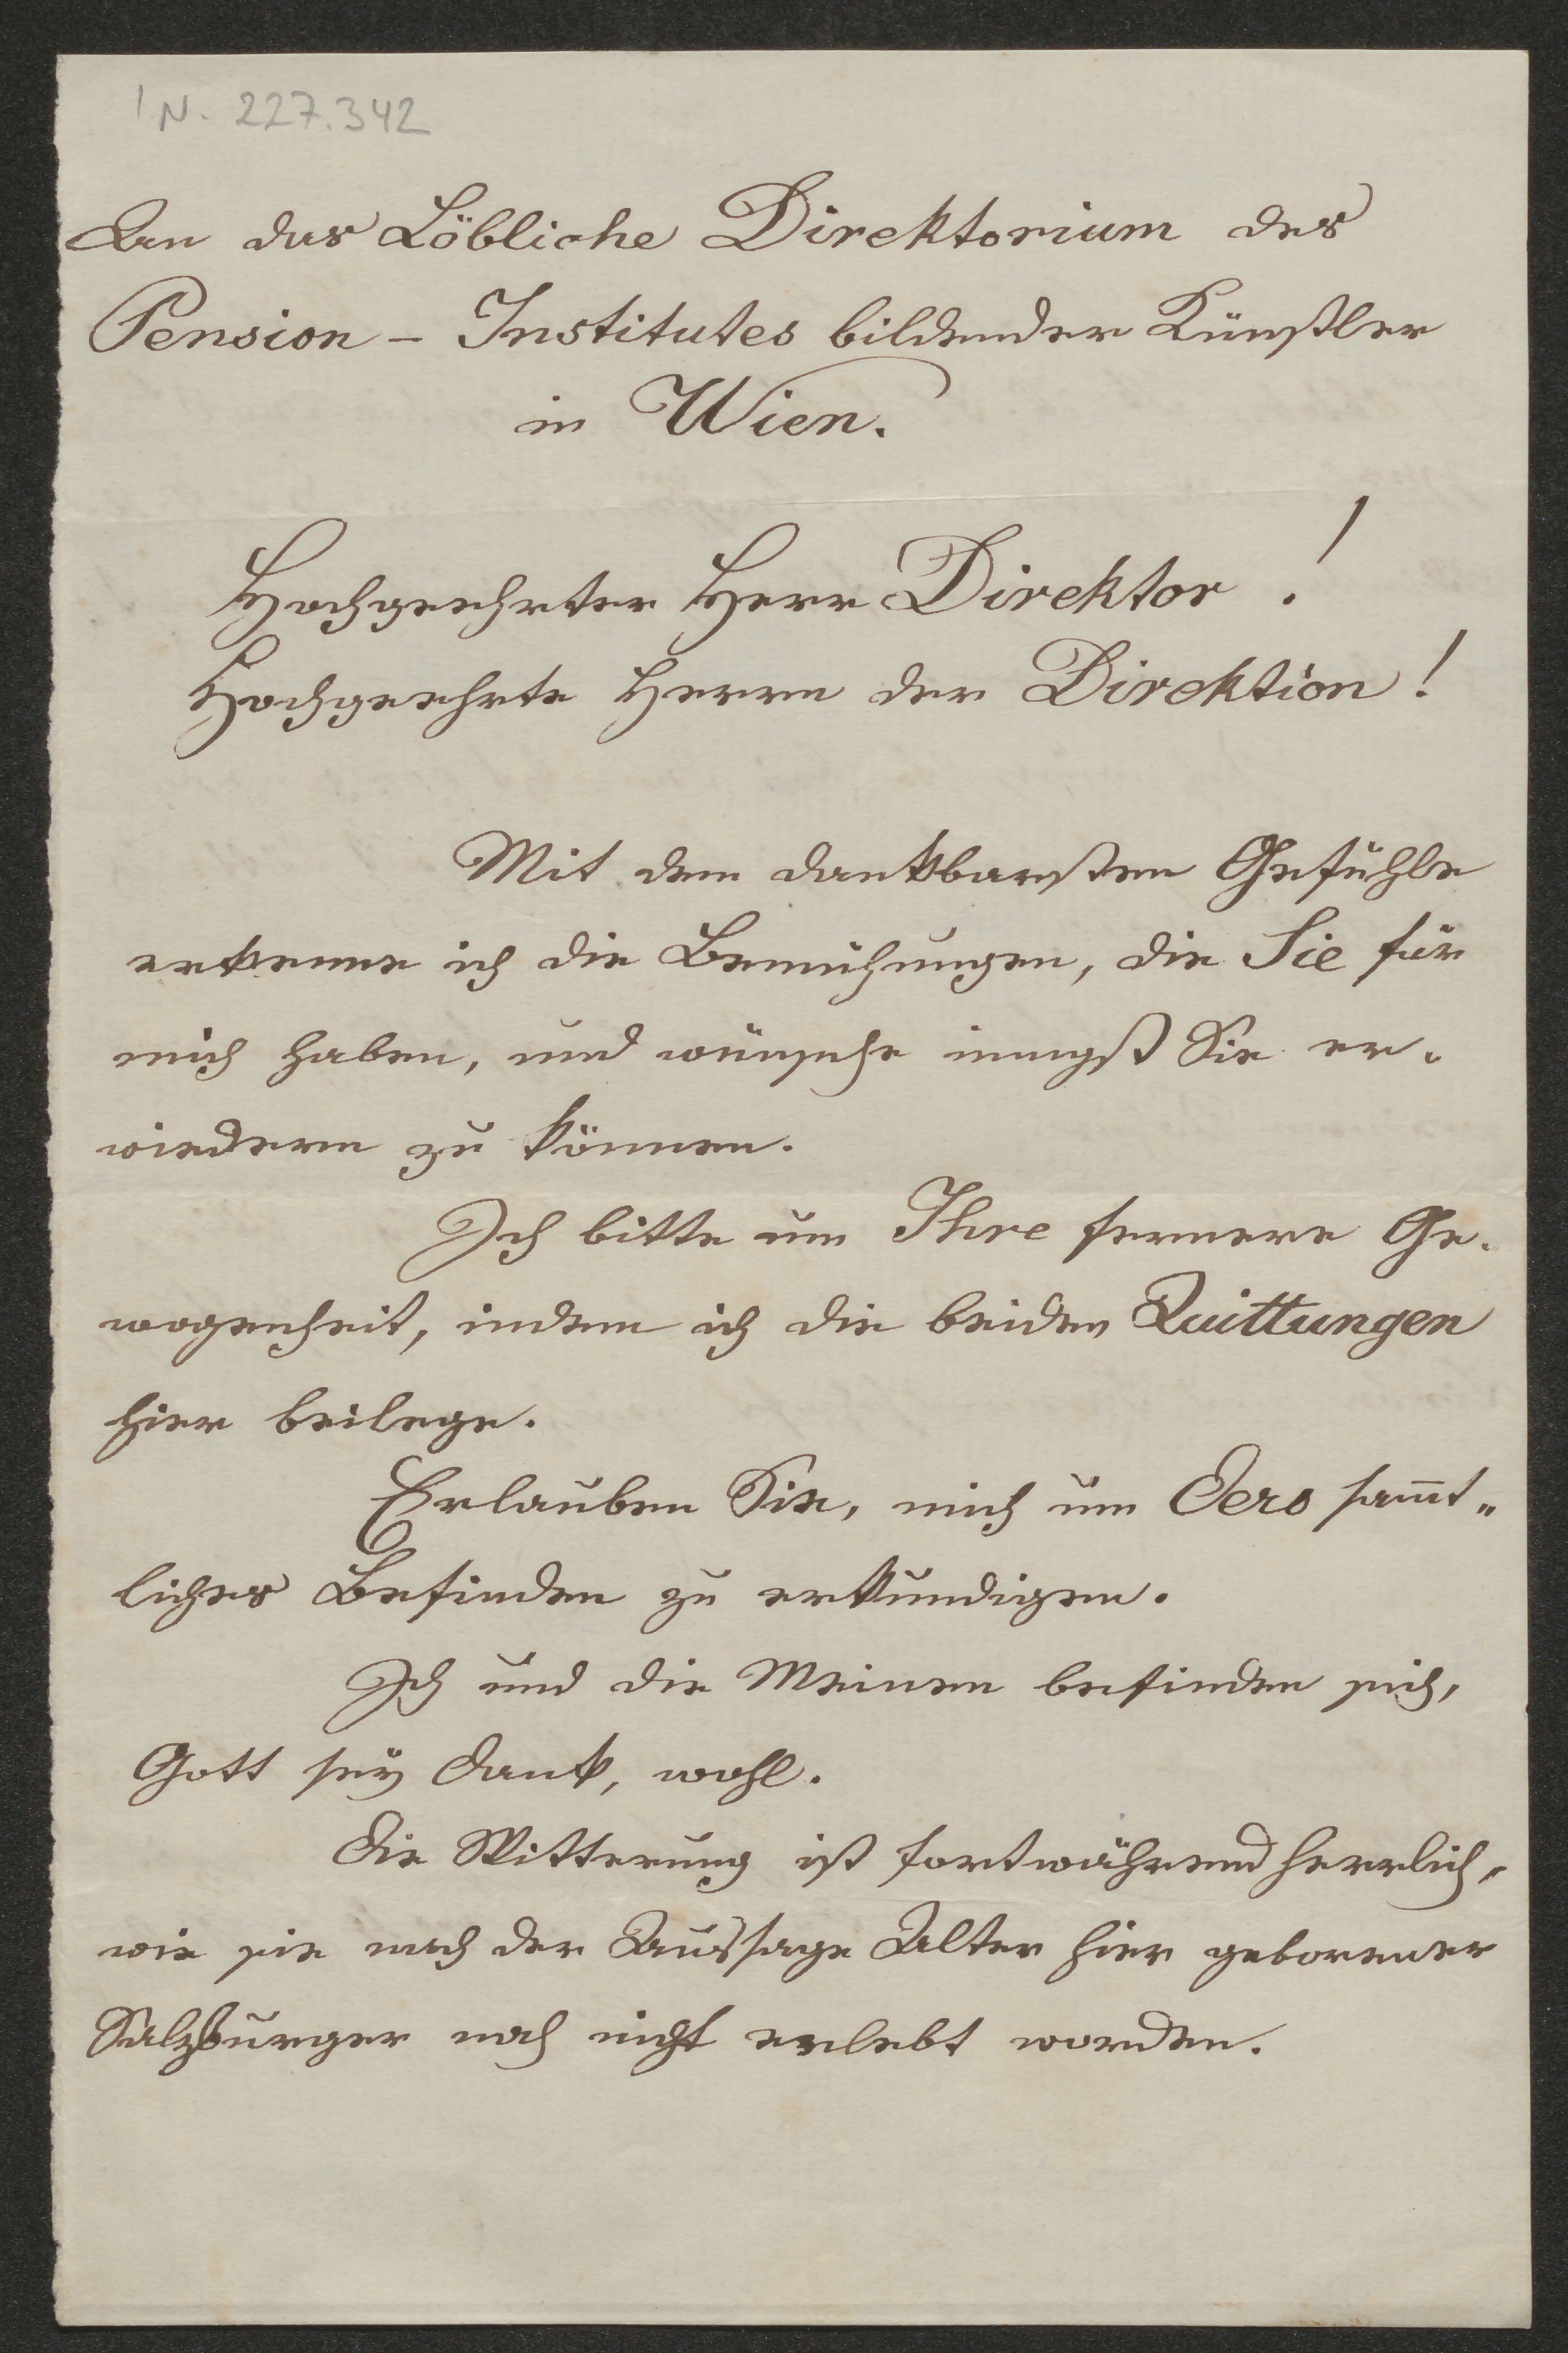 IN. 227.342
An das Löbliche Direktorium des
Pension - Institutes bildender Künstler
in Wien.
Hochgeehrter Herr Direktor !
Hochgeehrte Herrn der Direktion !
Mit dem dankbarsten Gefühle
erkenne ich die Bemühungen, die Sie für
mich haben, und wünsche innigst Sie er-
wiedern zu können.
Ich bitte um Ihre fernere Ge-
wogenheit, indem ich die beiden Quittungen
hier beilege.
Erlauben Sie, mich um Dero sam̅t-
liches Befinden zu erkundigen.
Ich und die Meinen befinden sich,
Gott seÿ Dank, wohl.
Die Witterung ist fortwährend herrlich,
wie sie nach der Aussage Alter hier geborener
Salzburger noch nicht erlebt worden.